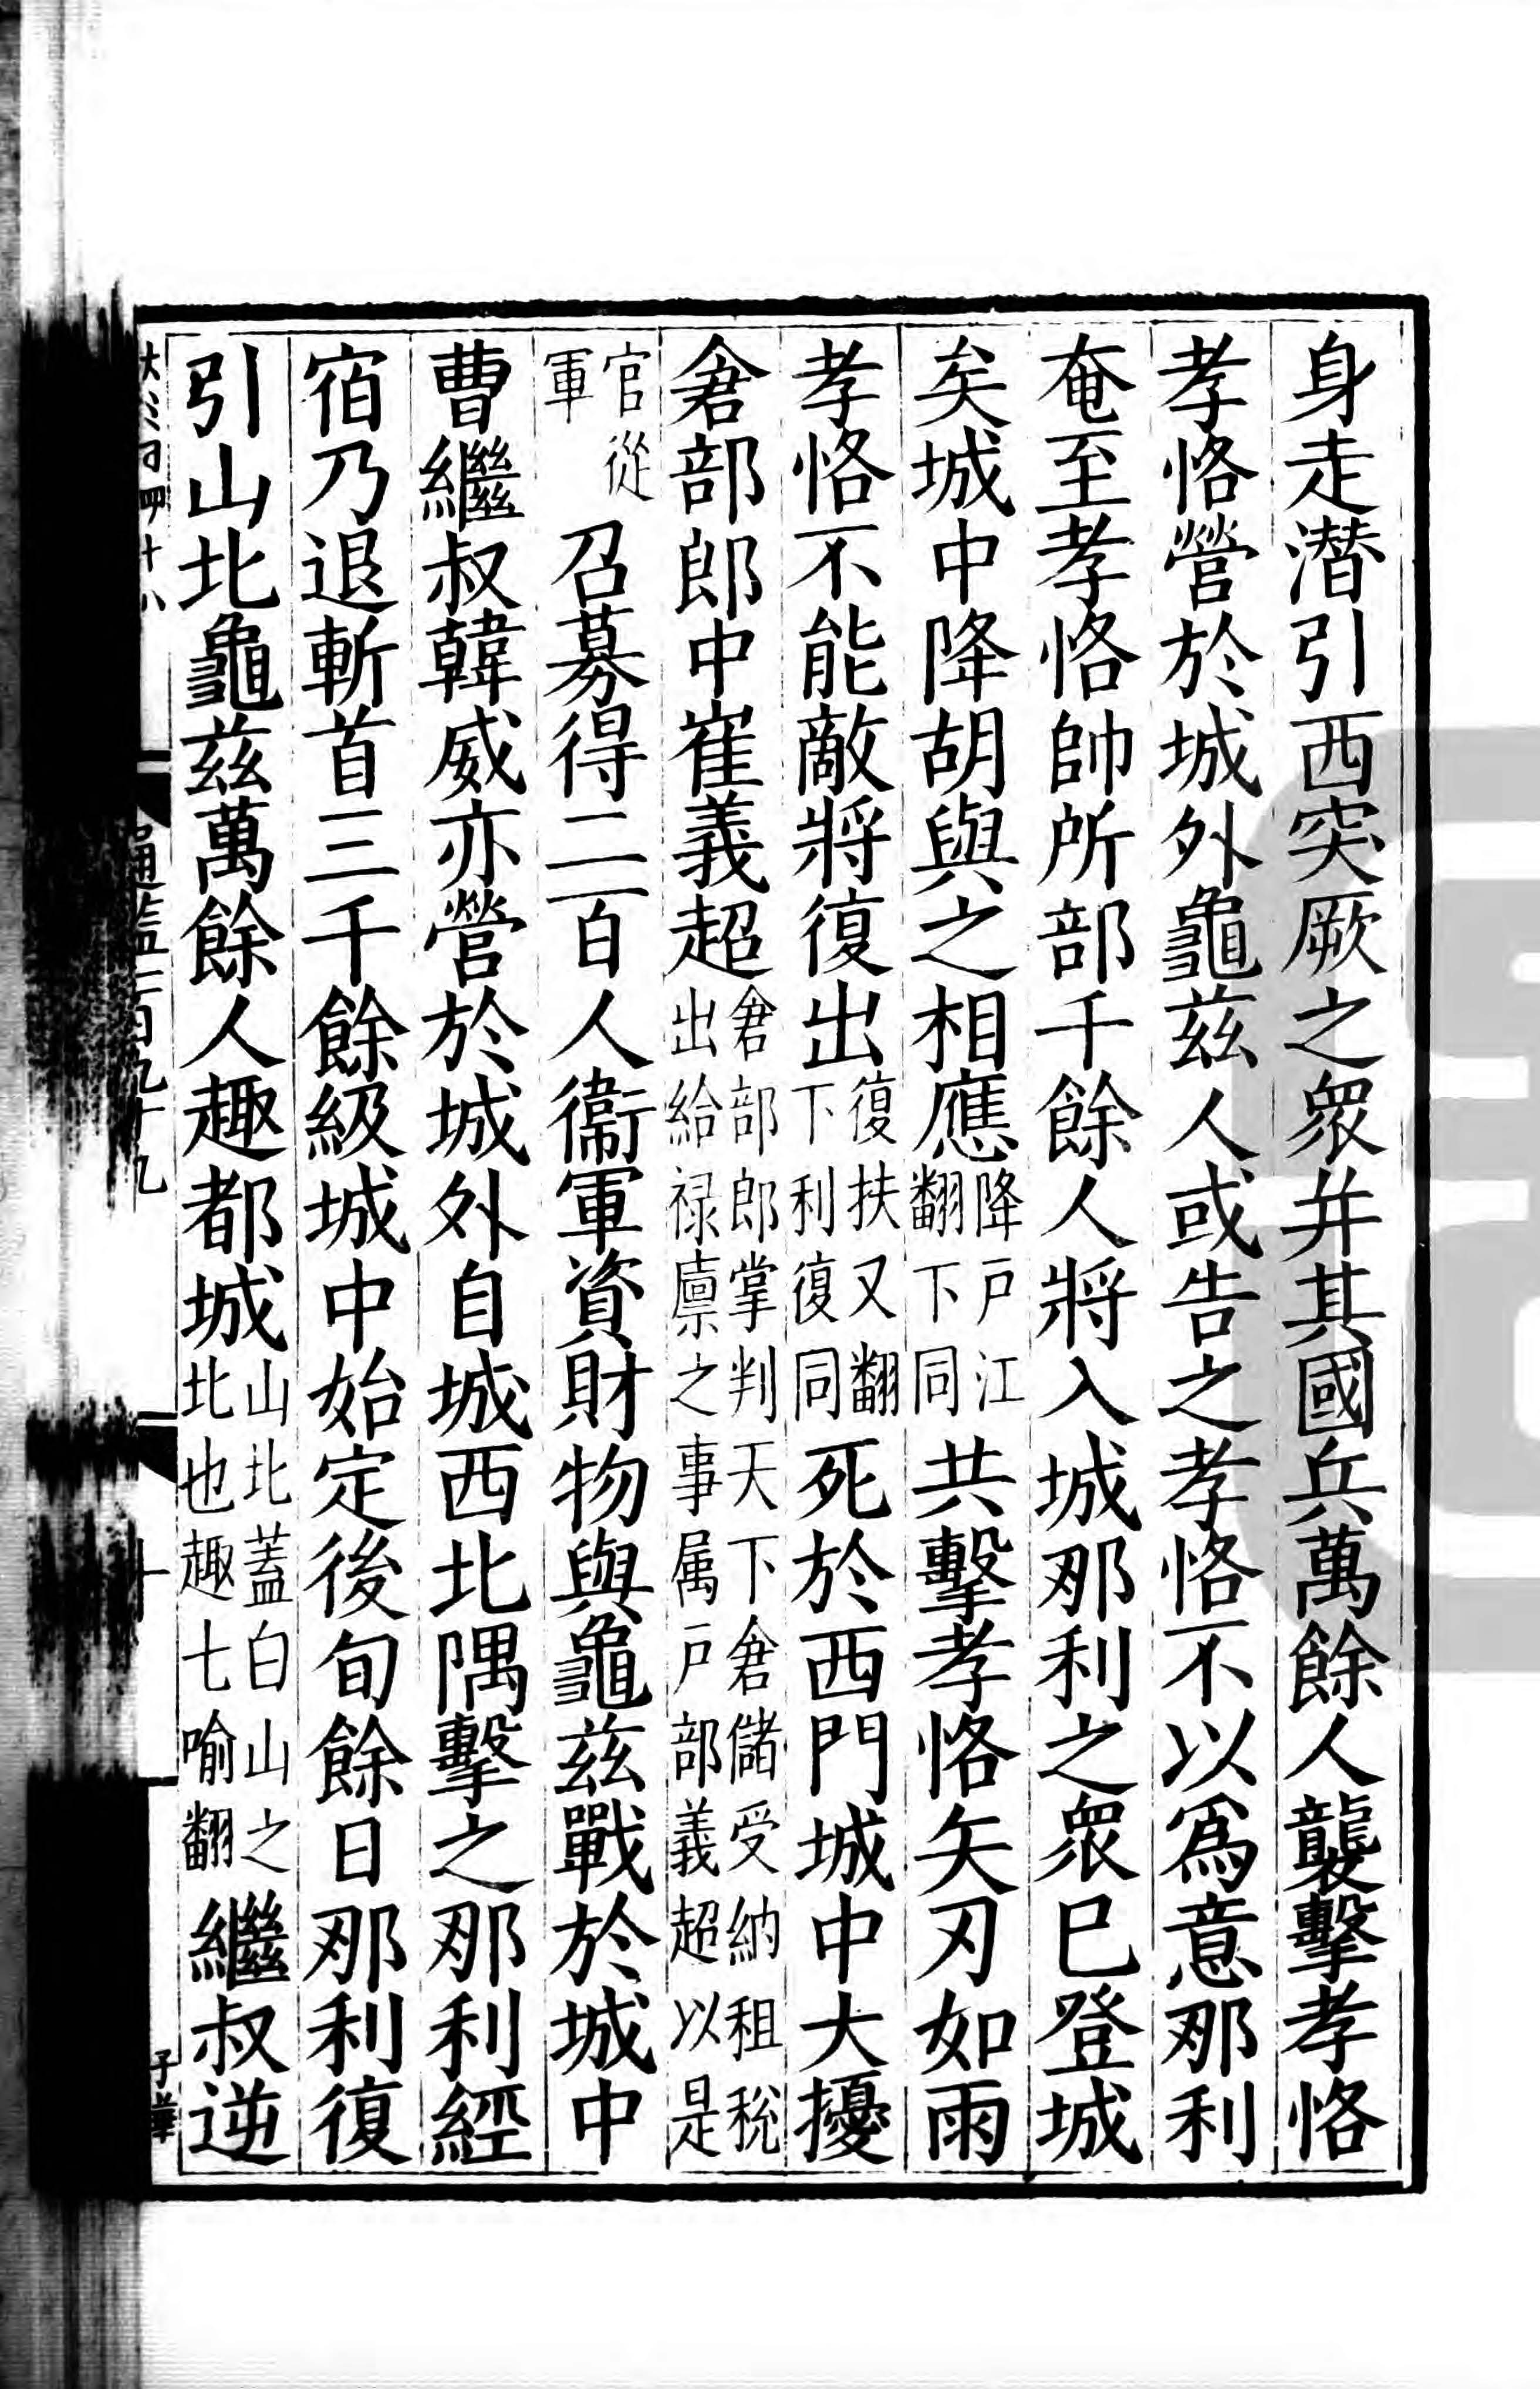 身走潜引西突厥之衆并其國兵萬餘人襲擊孝恪
孝恪營於城外龜兹人或告之孝恪不以爲意那利
奄至孝恪帥所部千餘人將入城那利之衆巳登城
矣城中降胡與之相應降戶江翻下同共擊孝恪矢刃如雨
孝恪不能敵將復出復扶又翻下利復同死於西門城中大擾
倉部郎中崔義超倉部郎掌判天下倉儲受納租稅出給禄廪之事属戶部義超以是
官從軍召募得二百人衞軍資財物與龜兹戰於城中
曹繼叔韓威亦營於城外自城西北隅擊之那利經
宿乃退斬首三千餘級城中始定後旬餘日那利復
引山北龜兹萬餘人趣都城山北蓋白山之北也趣七喻翻繼叔逆
通鑑一百九十九
十